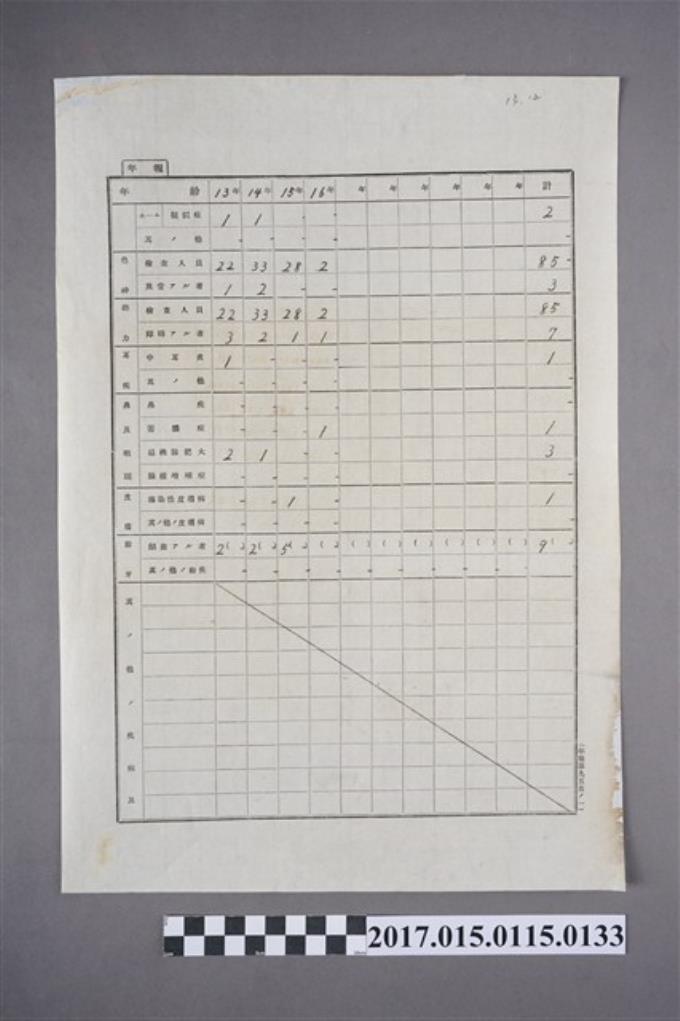 13.12
年報
年 齢 13年 14年 15年 16年 年 年 年 年 年 年 計
1 1 - - 2
其ノ他 - - - - -
色神 検査人員 22 33 28 2 85
異常アル者 1 2 - - 3
聴力 検査人員 22 33 28 2 85
障碍アル者 3 2 1 1 7
耳疾 中耳炎 1 - - - 1
其ノ他 - - - - -
鼻及咽頭 鼻疾 - - - - -
- - - 1 1
扁桃腺肥大 2 1 - - 3
腺様増殖症 - - - -
皮膚 伝染性皮膚病 - - 1 - 1
其ノ他ノ皮膚病 - - - - -
歯牙 齲歯アル者 2( ) 2( ) 5( ) ( ) ( ) ( ) ( ) ( ) ( ) ( ) 9( )
其ノ他ノ歯疾 - - - - - - - - - -
其ノ他ノ疾病及
2017.015.0115.0133